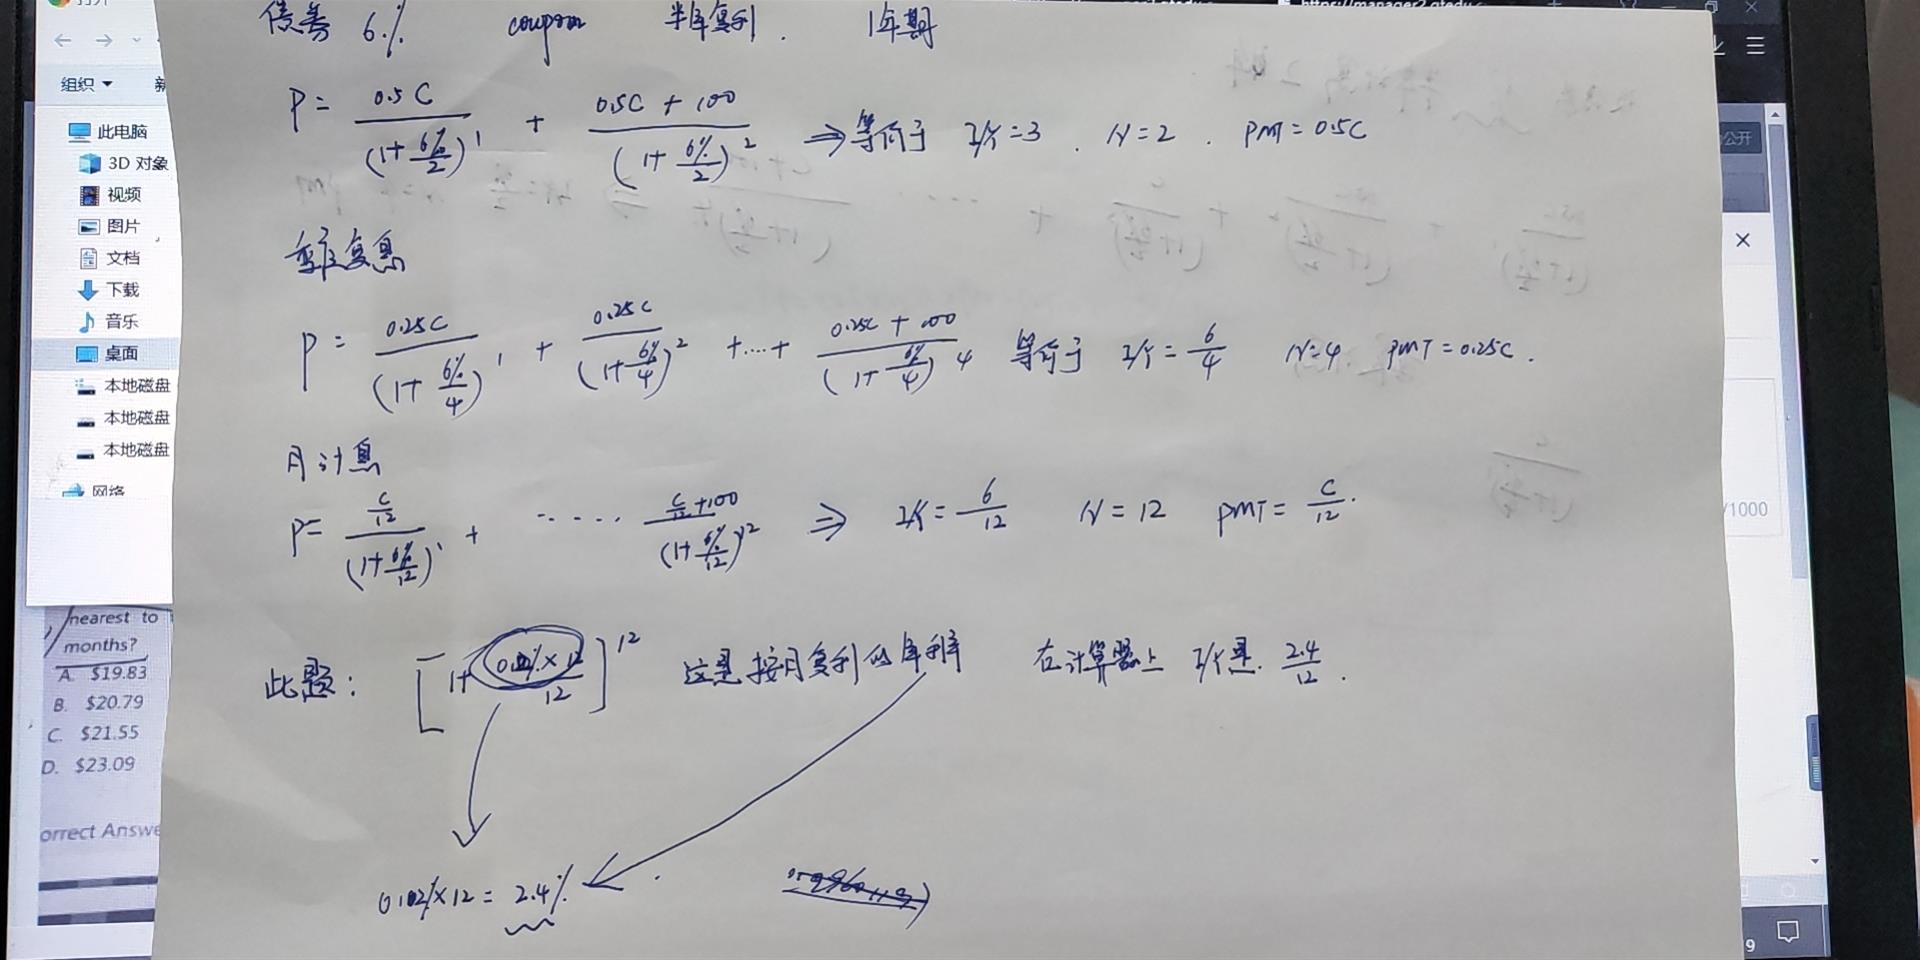 债券 6% coupon 半年复利. 1年期
P = 0.5C / (1+6%/2)^1 + 0.5C+100 / (1+6%/2)^2 ⇒ 等价于 I/Y=3. N=2. PMT=0.5C
季度复息
P = 0.25C / (1+6%/4)^1 + 0.25C / (1+6%/4)^2 +....+ 0.25C+100 / (1+6%/4)^4 等价于 I/Y=6/4 N=4 PMT=0.25C.
月计息
P= C/12 / (1+6%/12)^1 + ...... C/12+100 / (1+6%/12)^12 ⇒ I/Y=6/12 N=12 PMT=C/12.
此题: ×12 / 12]^12 这是按月复利的年利率 在计算器上 I/Y是 2.4/12.
×12 = 2.4%
组织
此电脑
3D 对象
视频
图片
文档
下载
音乐
桌面
本地磁盘
本地磁盘
本地磁盘
网络
nearest to
months?
A. $19.83
B. $20.79
C. $21.55
D. $23.09
orrect Answe
公开
/1000
9